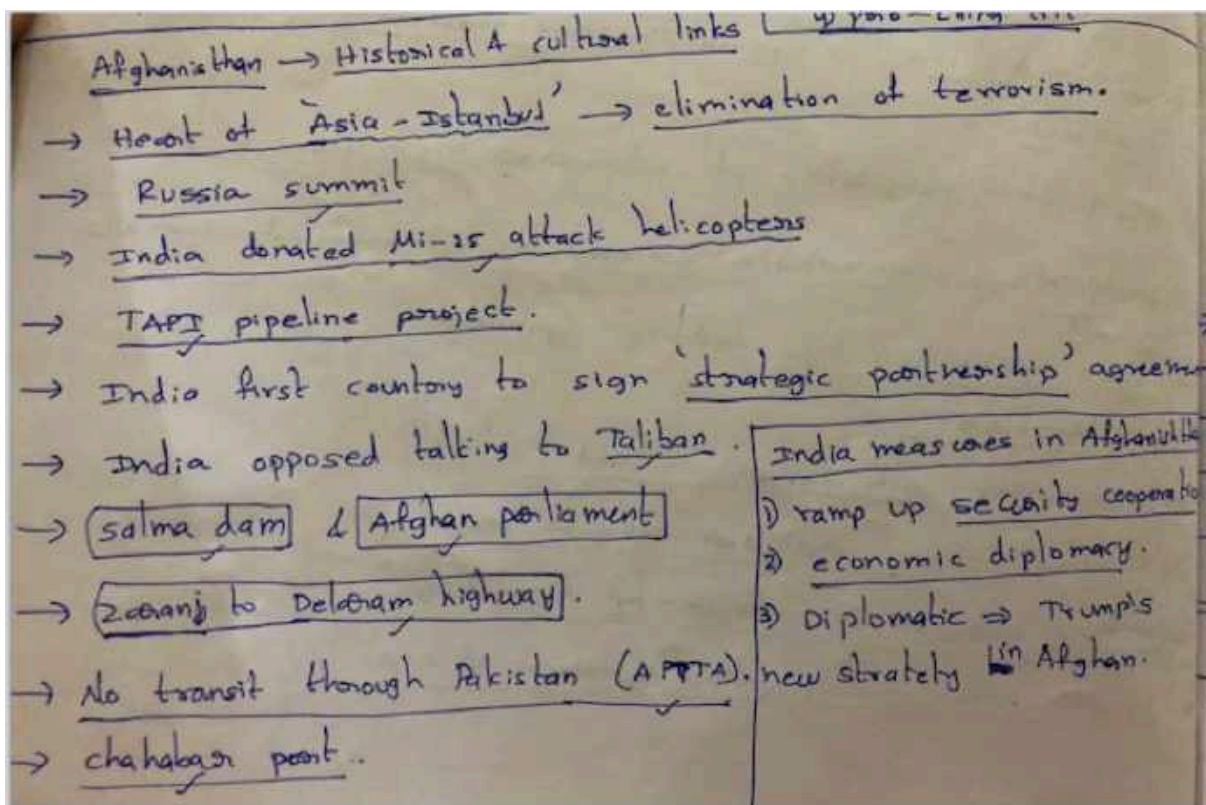 Afghanisthan → Historical & cultural links
→ Heart of 'Asia - Istanbul' → elimination of terrorism.
→ Russia summit
→ India donated Mi-25 attack helicopters
→ TAPI pipeline project.
→ India first country to sign 'strategic partnership' agreem
→ India opposed talking to Taliban.
→ salma dam & Afghan parliament
→ Zaranj to Delaram highway.
→ No transit through Pakistan (APTTA).
→ chahabar port.
India measures in Afghanistha
1) ramp up security cooperatio
2) economic diplomacy.
3) Diplomatic ⇒ Trump's
new stratety in Afghan.